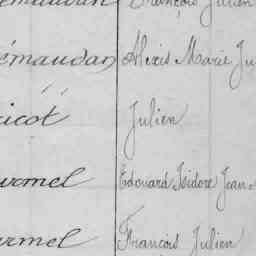 François Julien
émaudan Alexis Marie Ju
icot Julien
urmel Edouard Isidore Jean
urmel François Julien